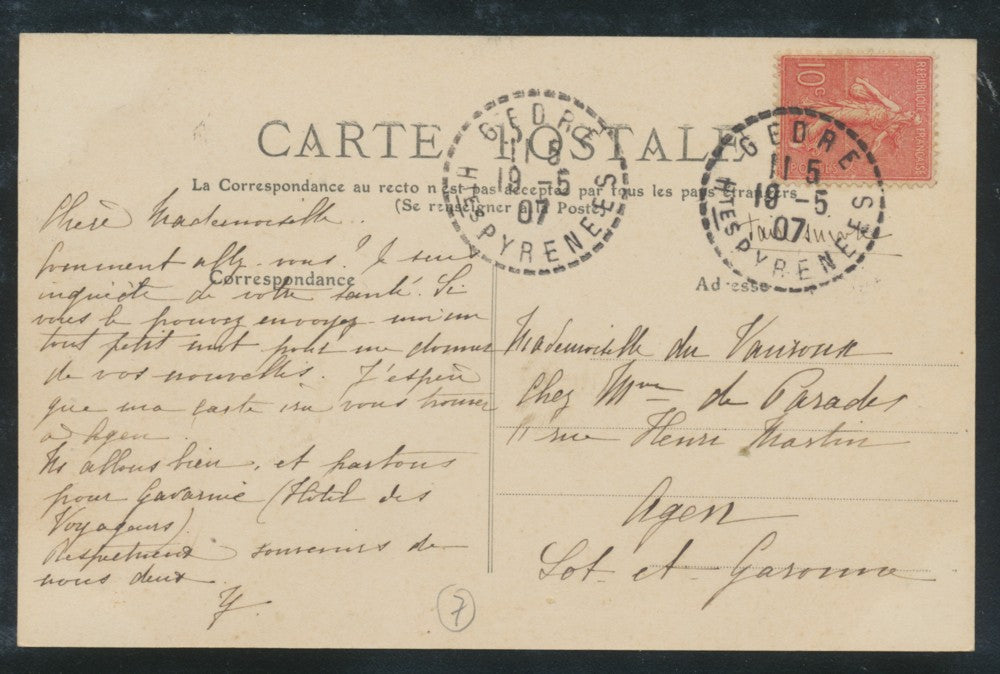 CARTE POSTALE
La Correspondance au recto n'est pas acceptée par tous les pays étrangers
(Se renseigner à la Poste)
Correspondance
Adresse
REPUBLIQUE FRANÇAISE
10c
POSTES
GEDRE
11 5
19 -5
07
HTES PYRENEES
GEDRE
11 5
19 -5
07
HTES PYRENEES
Chère Mademoiselle.
Comment allez-vous? Je suis
inquiète de votre santé. Si
vous le pouvez envoyez-moi un
tout petit mot pour me donner
de vos nouvelles. J'espère
que ma carte ira vous trouver
à Agen.
Ns allons bien, et partons
pour Gavarnie (Hôtel des
Voyageurs)
Respectueux souvenirs de
nous deux.
Y.
Faire suivre
Mademoiselle du
Chez Mme de Parades
rue Henri Martin
Agen
Lot-et-Garonne
7